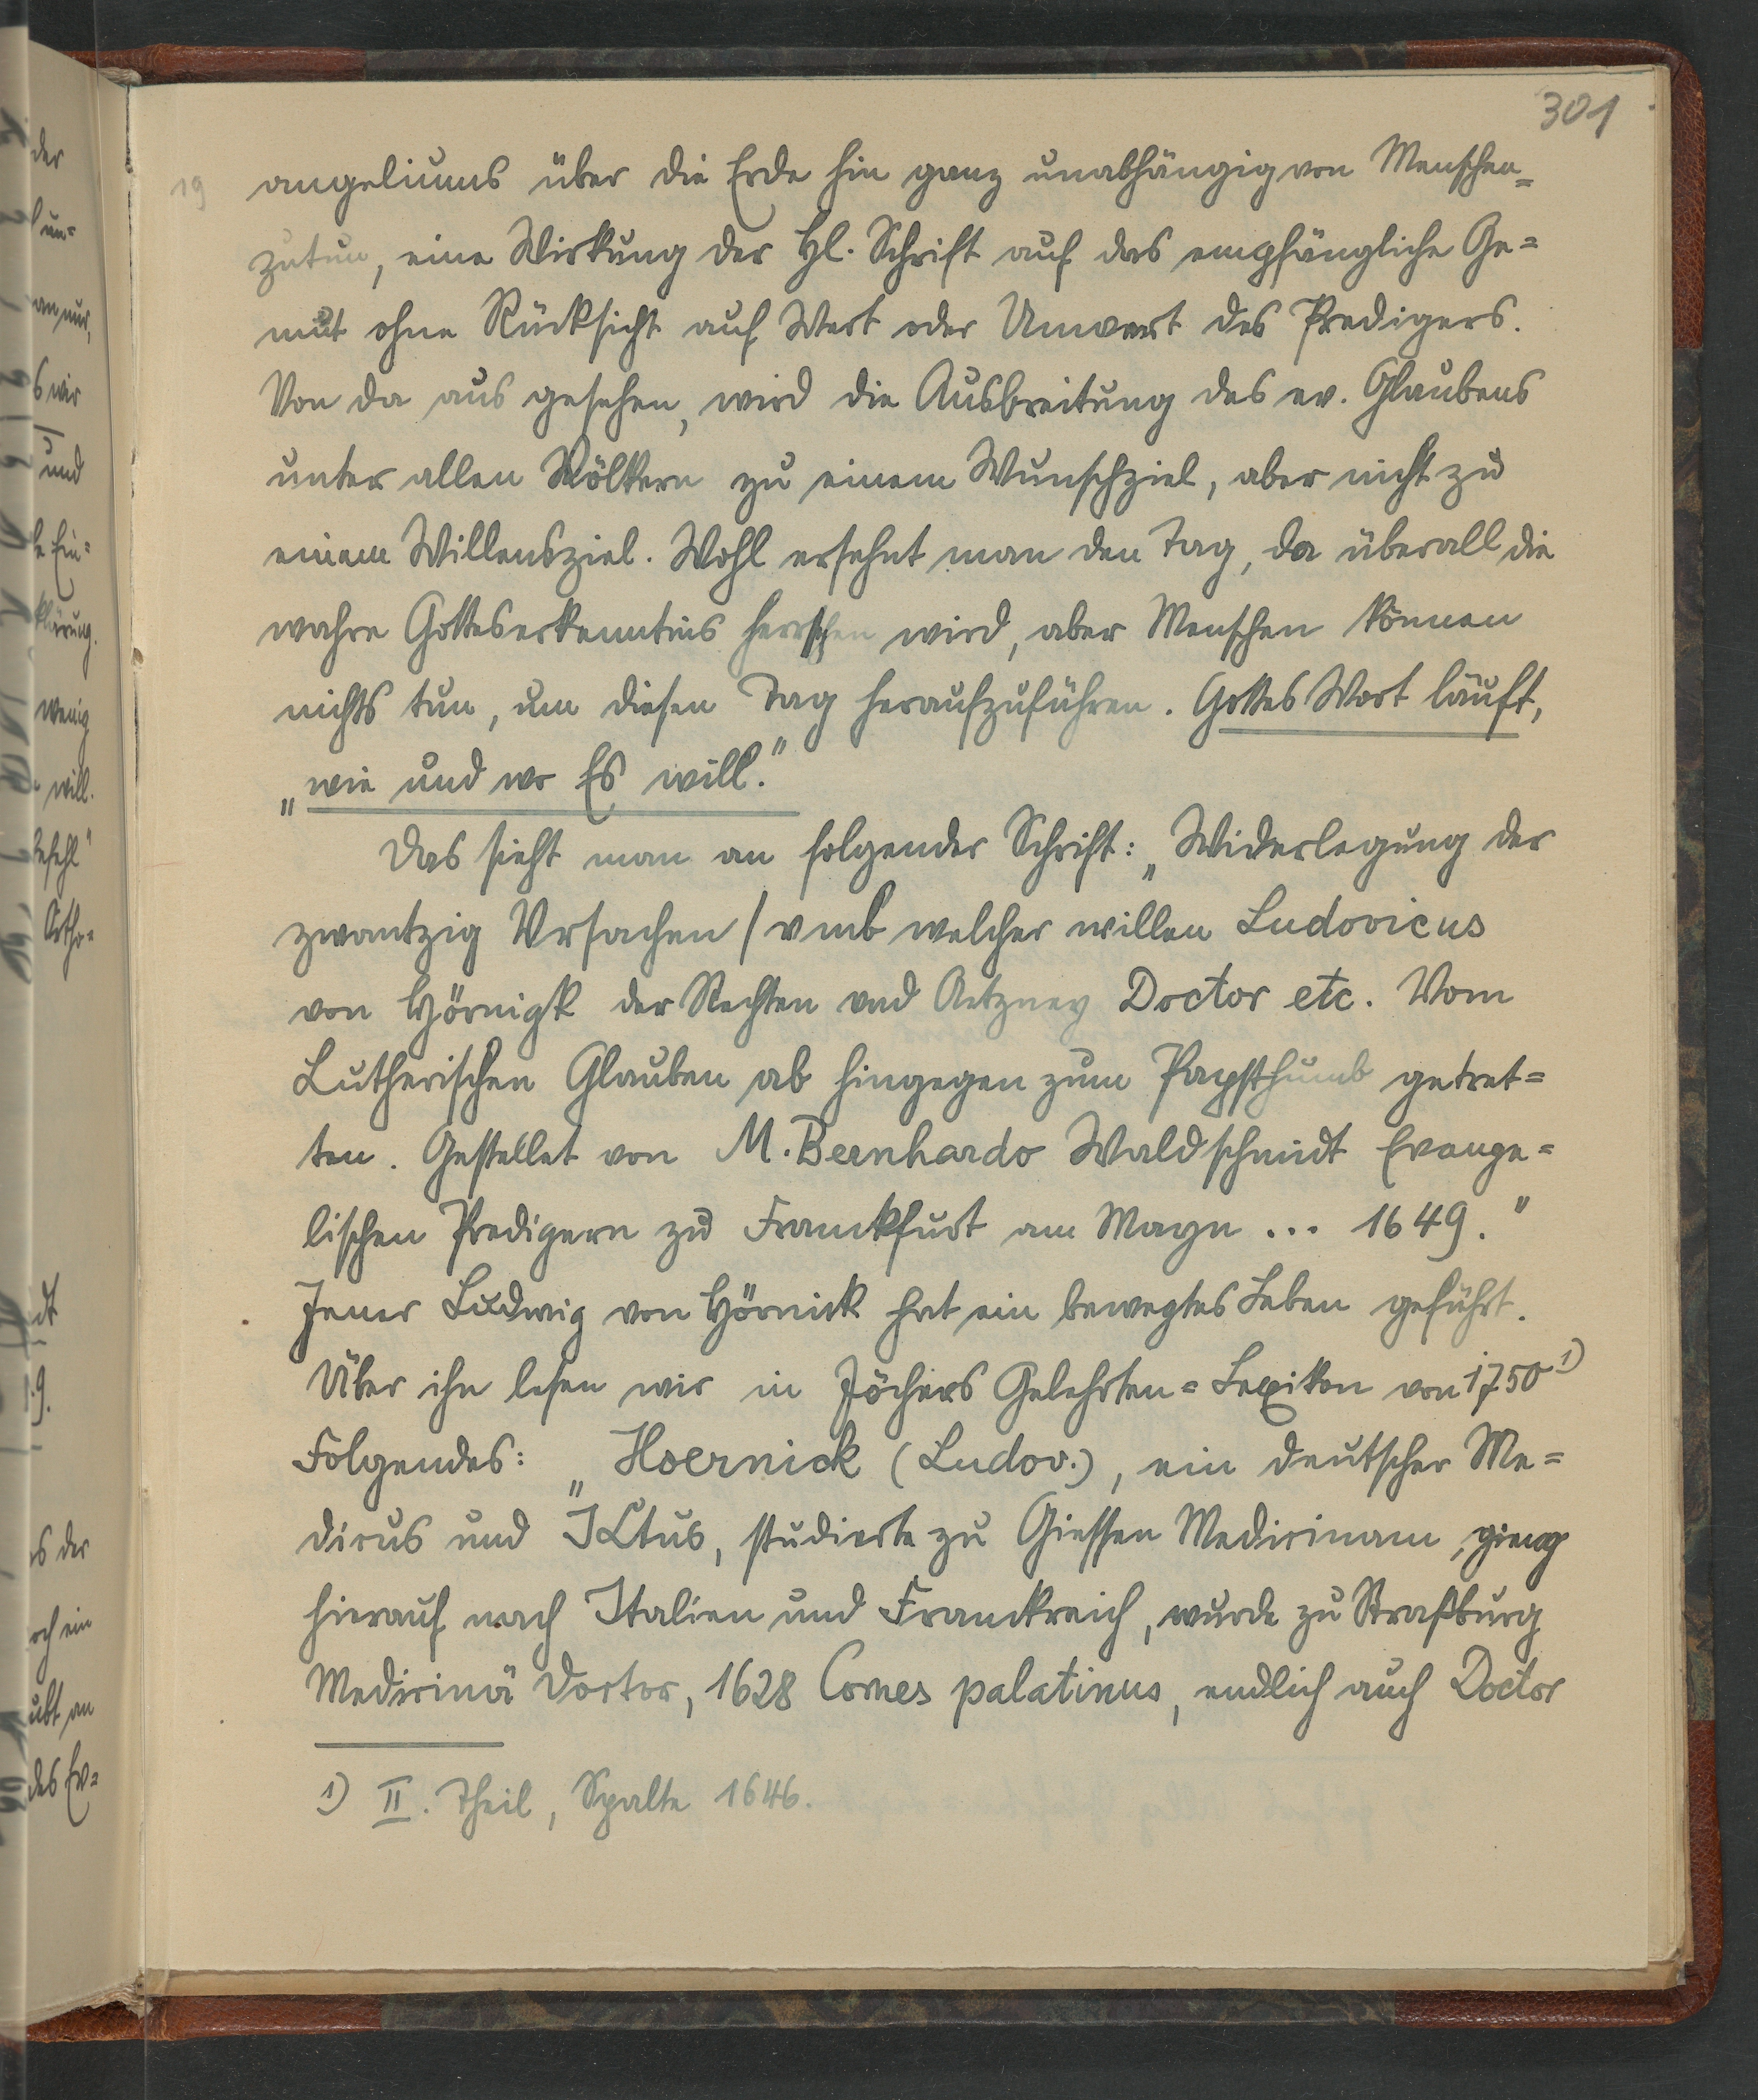 301
19 angeliums über die Erde hin ganz unabhängig von Menschen=
zutun, eine Wirkung der Hl. Schrift auf das empfängliche Ge=
müt ohne Rücksicht auf Wert oder Unwert des Predigers.
Von da aus gesehen, wird die Ausbreitung des ev. Glaubens
unter allen Völkern zu einem Wunschziel, aber nicht zu
einem Willensziel. Wohl ersehnt man den Tag, da überall die
wahre Gotteserkenntnis herrschen wird, aber Menschen können
nichts tun, um diesen Tag heraufzuführen. Gottes Wort läuft,
„wie und wo Es will."
Das sieht man an folgender Schrift: „Widerlegung der
zwantzig Vrsachen / vmb welcher willen Ludovicus
von Hörnigk der Rechten vnd Artzney Doctor etc. Vom
Lutherischen Glauben ab hingegen zum Papstthumb getret=
ten. Gestellet von M. Bernhardo Waldschmidt Evange=
lischen Predigern zu Franckfurt am Mayn ... 1649."
Jener Ludwig von Hörnick hat ein bewegtes Leben geführt.
Über ihn lesen wir in Jöchers Gelehrten=Lexikon von 1750 1)
Folgendes: „Hoernick (Ludov.), ein deutscher Me=
dicus und JCtus, studierte zu Giessen Medicinam, gieng
hierauf nach Italien und Franckreich, wurde zu Straßburg
Medicinä Doctor, 1628 Comes palatinus, endlich auch Doctor
1) II. Theil, Spalte 1646.